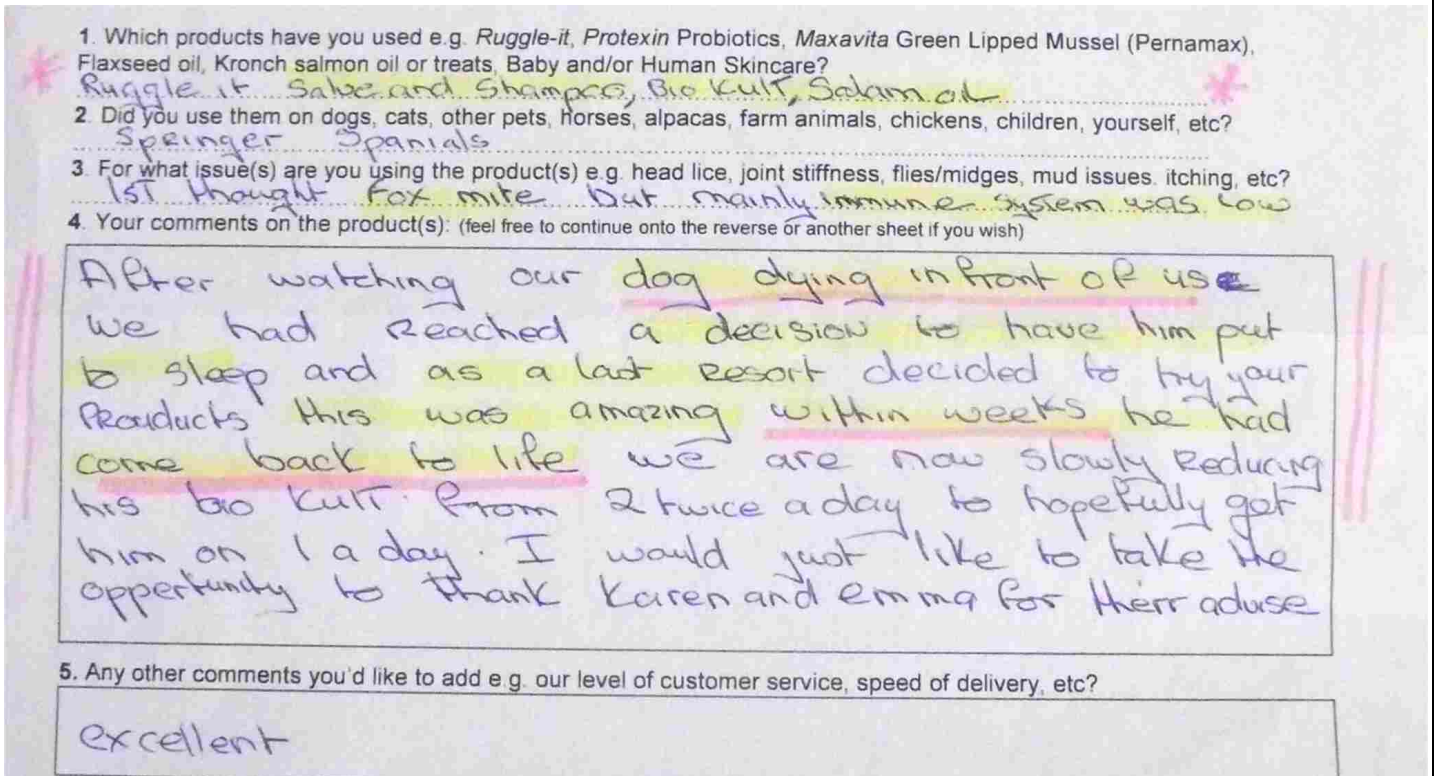 1. Which products have you used e.g. Ruggle-it, Protexin Probiotics, Maxavita Green Lipped Mussel (Pernamax),
Flaxseed oil, Kronch salmon oil or treats, Baby and/or Human Skincare?
Ruggle it Salve and Shampoo, Bio Kult, Salam oil
2. Did you use them on dogs, cats, other pets, horses, alpacas, farm animals, chickens, children, yourself, etc?
Springer Spanials
3. For what issue(s) are you using the product(s) e.g. head lice, joint stiffness, flies/midges, mud issues. itching, etc?
1ST thought Fox mite but mainly immune system was low
4. Your comments on the product(s): (feel free to continue onto the reverse or another sheet if you wish)
After watching our dog dying infront of us
we had Reached a decision to have him put
to sleep and as a last Resort decided to try your
Products this was amazing within weeks he had
come back to life we are now slowly Reducing
his bio Kult from 2 twice a day to hopefully get
him on 1 a day. I would just like to take the
oppertunity to thank Karen and emma for their advise
5. Any other comments you'd like to add e.g. our level of customer service, speed of delivery, etc?
excellent